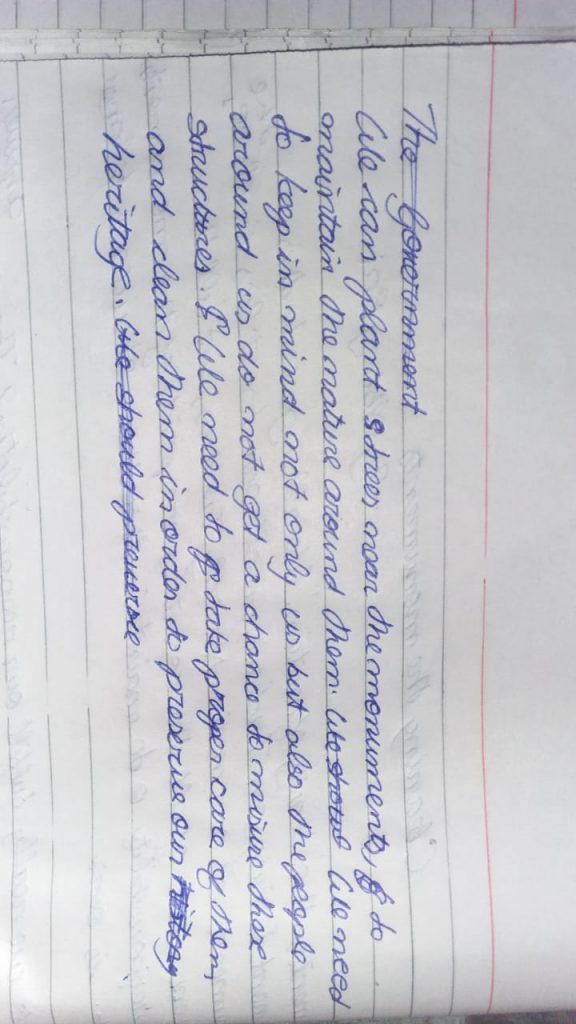 The Government
We can plant trees near the monuments, to
maintain the nature around them. We should We need
to keep in mind not only us but also the people
around us do not get a chance to misuse these
structures. We need to take proper care of them,
and clean them in order to preserve our history
heritage. We should preserve